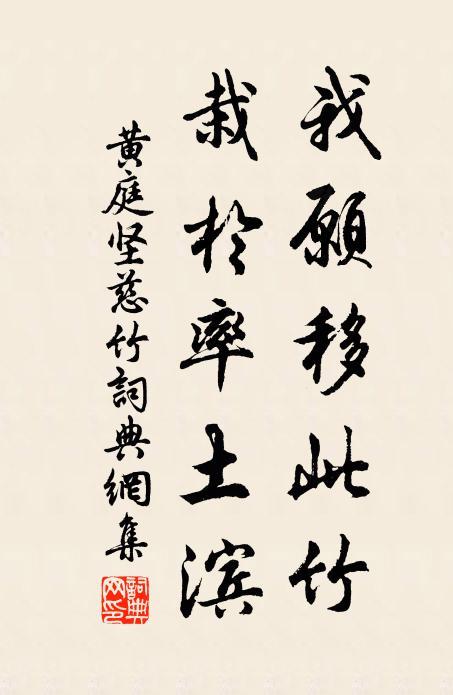 我願移此竹
栽於率土滨
黄庭坚慈竹詞典網集
詞典網印